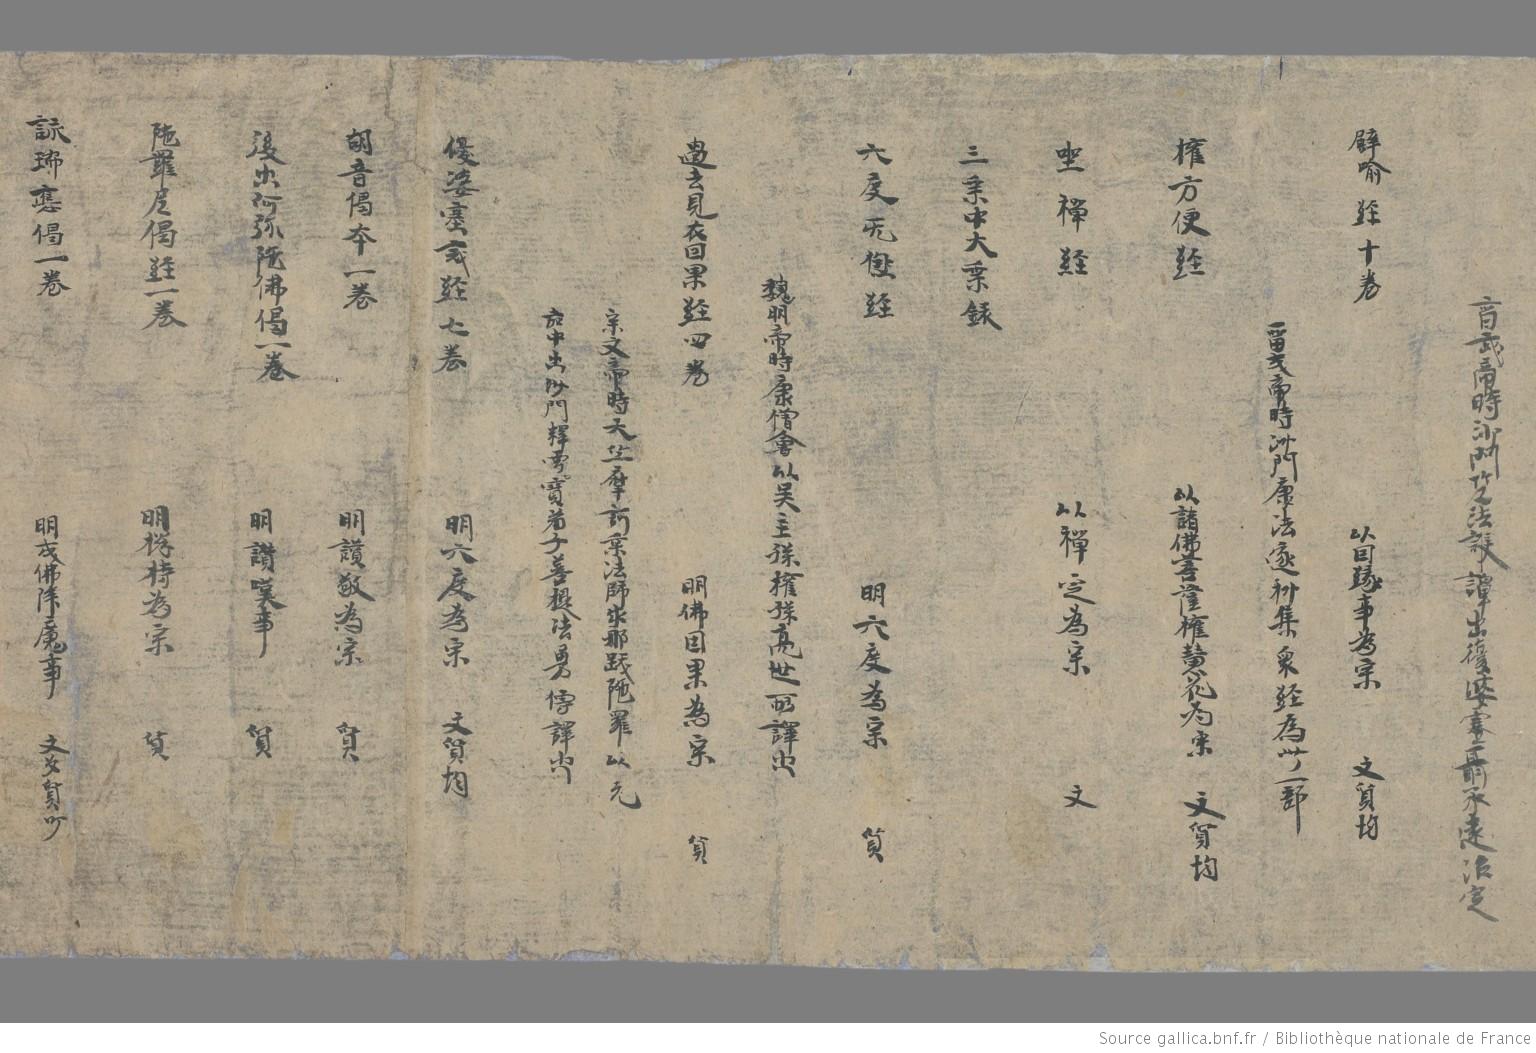 晉武帝時沙門竺法護譯出復婆塞聶承遠治定
辟喻経十卷 以因緣事為宗 文質均
晉文帝時沙門康法邃抄集衆経為此一部
權方便経 以諸佛菩薩權 為宗 文質均
坐禪経 以禪定為宗 文
三乗中大乗録
六度无極経 明六度為宗 質
魏明帝時康僧會以吴主孫權孫亮世所譯出
過去見在因果経四卷 明佛因果為宗 質
宋文帝時天竺摩訶乗法師求那跋陁羅以元
嘉中出沙門釋寶雲弟子菩提法勇傳譯出
優婆塞戒経七卷 明六度為宗 文質均
胡音偈本一卷 明讃敬為宗 質
後出阿弥陁佛偈一卷 明讃嘆事 質
陁羅尼偈経一卷 明揔持為宗 質
詠瑞應偈一卷 明成佛降魔事 文少質
Source gallica.bnf.fr / Bibliothèque nationale de France